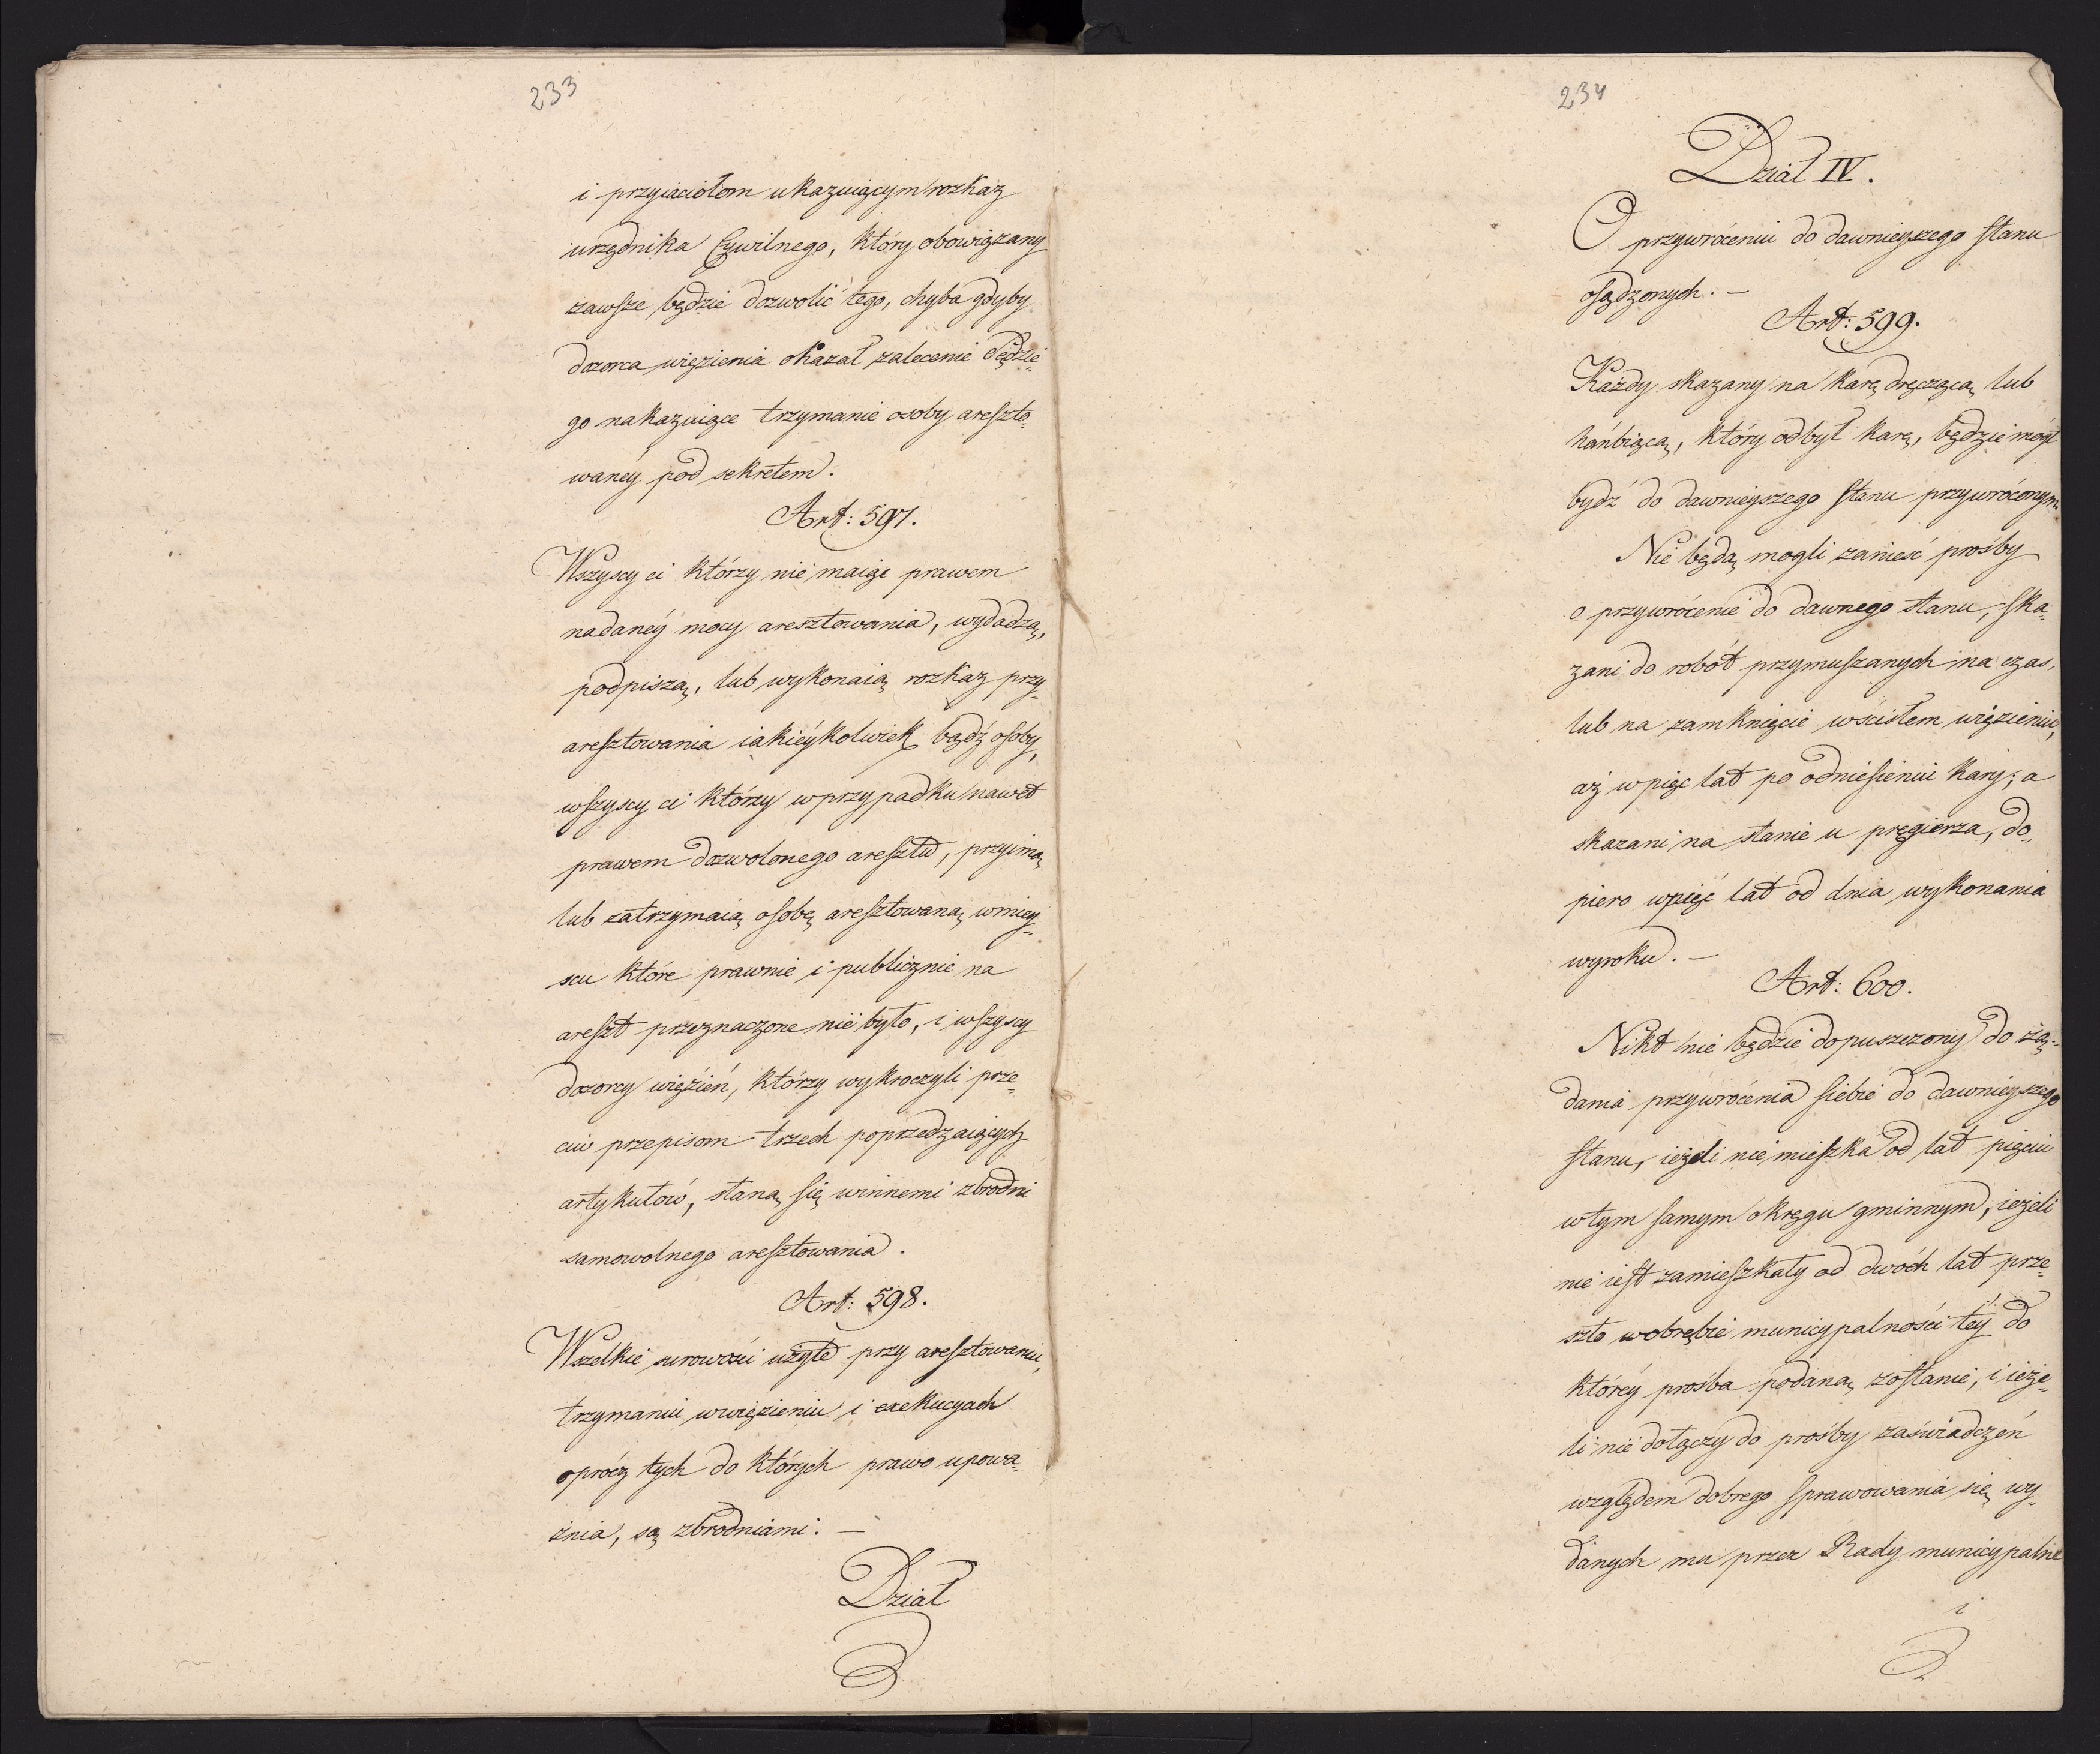 233
i przyiaciołom ukazuiącym rozkaz
urzędnika Cywilnego, który obowiązany
zawsze będzie dozwolić tego, chyba gdyby
dozorca więzienia okazał zalecenie Sędzie=
go nakazuiące trzymanie osoby areszto=
waney pod sekretem.
Art: 597.
Wszyscy ci którzy nie maiąc prawem
nadanéy mocy aresztowania, wydadzą,
podpiszą, lub wykonaią rozkaz przy=
aresztowania iakiéykolwiek bądź osoby,
wszyscy ci którzy w przypadku nawet
prawem dozwolonego aresztu, przyimą
lub zatrzymaią osobę aresztowaną w miey=
scu które prawnie i publicznie na
areszt przeznaczone nie było, i wszyscy
dozorcy więzień, którzy wykroczyli prze=
ciw przepisom trzech poprzedzaiących
artykułów, staną się winnemi zbrodni
samowolnego aresztowania.
Art: 598.
Wszelkie surowości użyte przy aresztowaniu,
trzymaniu w więzieniu i exekucyach
oprócz tych do których prawo upowa=
żnia, są zbrodniami. —
Dział
234
Dział IV.
O przywróceniu do dawnieyszego stanu
osądzonych. —
Art: 599.
Każdy skazany na karę dręczącą lub
hańbiącą, który odbył karę, będzie mógł
bydź do dawnieyszego stanu przywróconym.
Nie będą mogli zanieść prośby
o przywrócenie do dawnego stanu, ska=
zani do robót przymuszanych na czas,
lub na zamknięcie w ścisłem więzieniu,
aż w pięc lat po odniesieniu kary; a
skazani na stanie u pręgierza, do=
piero w pięć lat od dnia wykonania
wyroku. —
Art: 600.
Nikt nie będzie dopuszczony do żą=
dania przywrócenia siebie do dawnieyszego
stanu, ieżeli nie mieszka od lat pięciu
w tym samym okręgu gminnym, ieżeli
nie iest zamieszkały od dwóch lat prze=
szło w obrębie municypalności téy do
któréy prośba podaną zostanie, i ieże=
li nie dołączy do prośby zaświadczeń
względem dobrego sprawowania się wy=
danych mu przez Rady municypalne
i